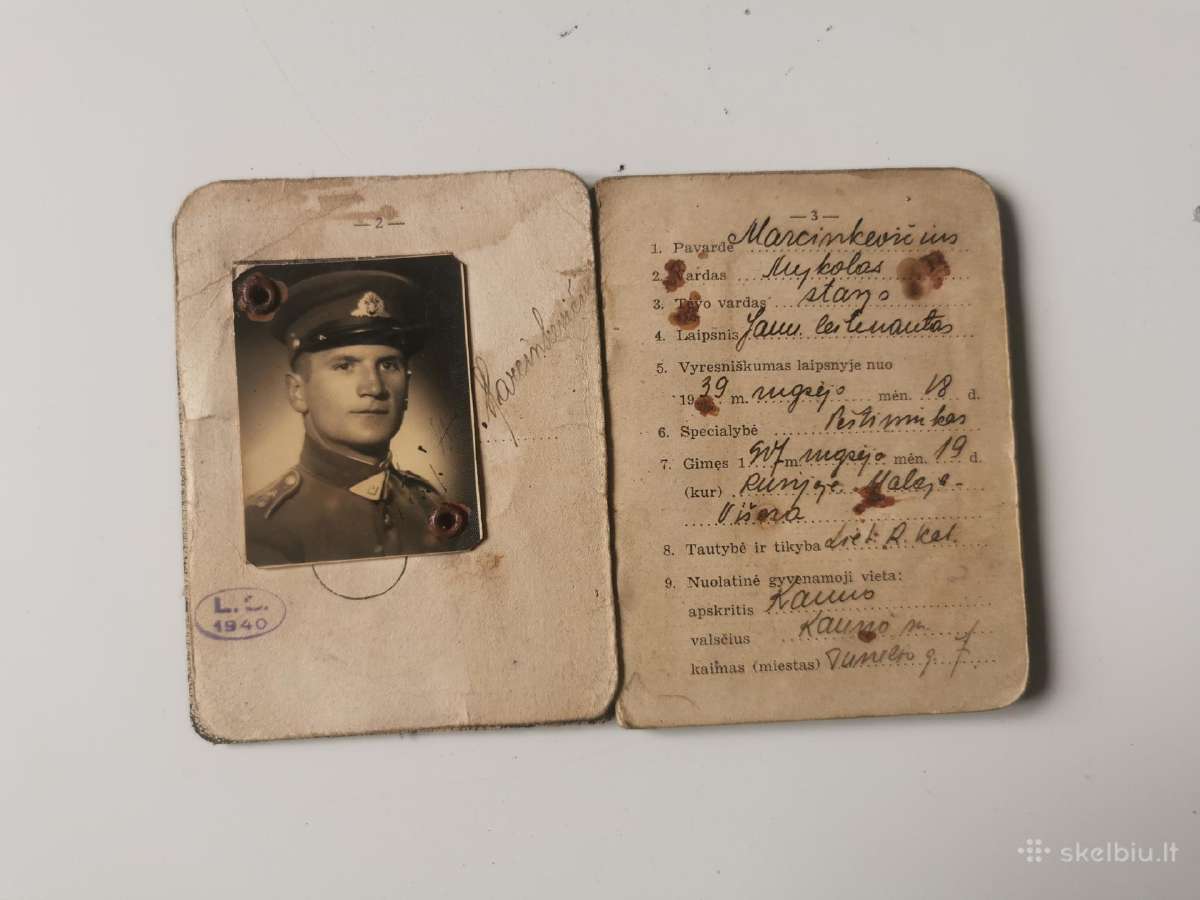 — 2 —
Marcinkevičius
L. Š.
1940
— 3 —
1. Pavardė Marcinkevičius
2. Vardas Mykolas
3. Tėvo vardas Stasys
4. Laipsnis Jaun. leitenantas
5. Vyresniškumas laipsnyje nuo
1939 m. rugsėjo mėn. 18 d.
6. Specialybė Pėstininkas
7. Gimęs 1907 m. rugsėjo mėn. 19 d.
(kur) Rusijoje Malaja-
Višera
8. Tautybė ir tikyba Liet. R. kat.
9. Nuolatinė gyvenamoji vieta:
apskritis Kauno
valsčius Kauno m.
kaimas (miestas) Tunelio g. 7
skelbiu.lt